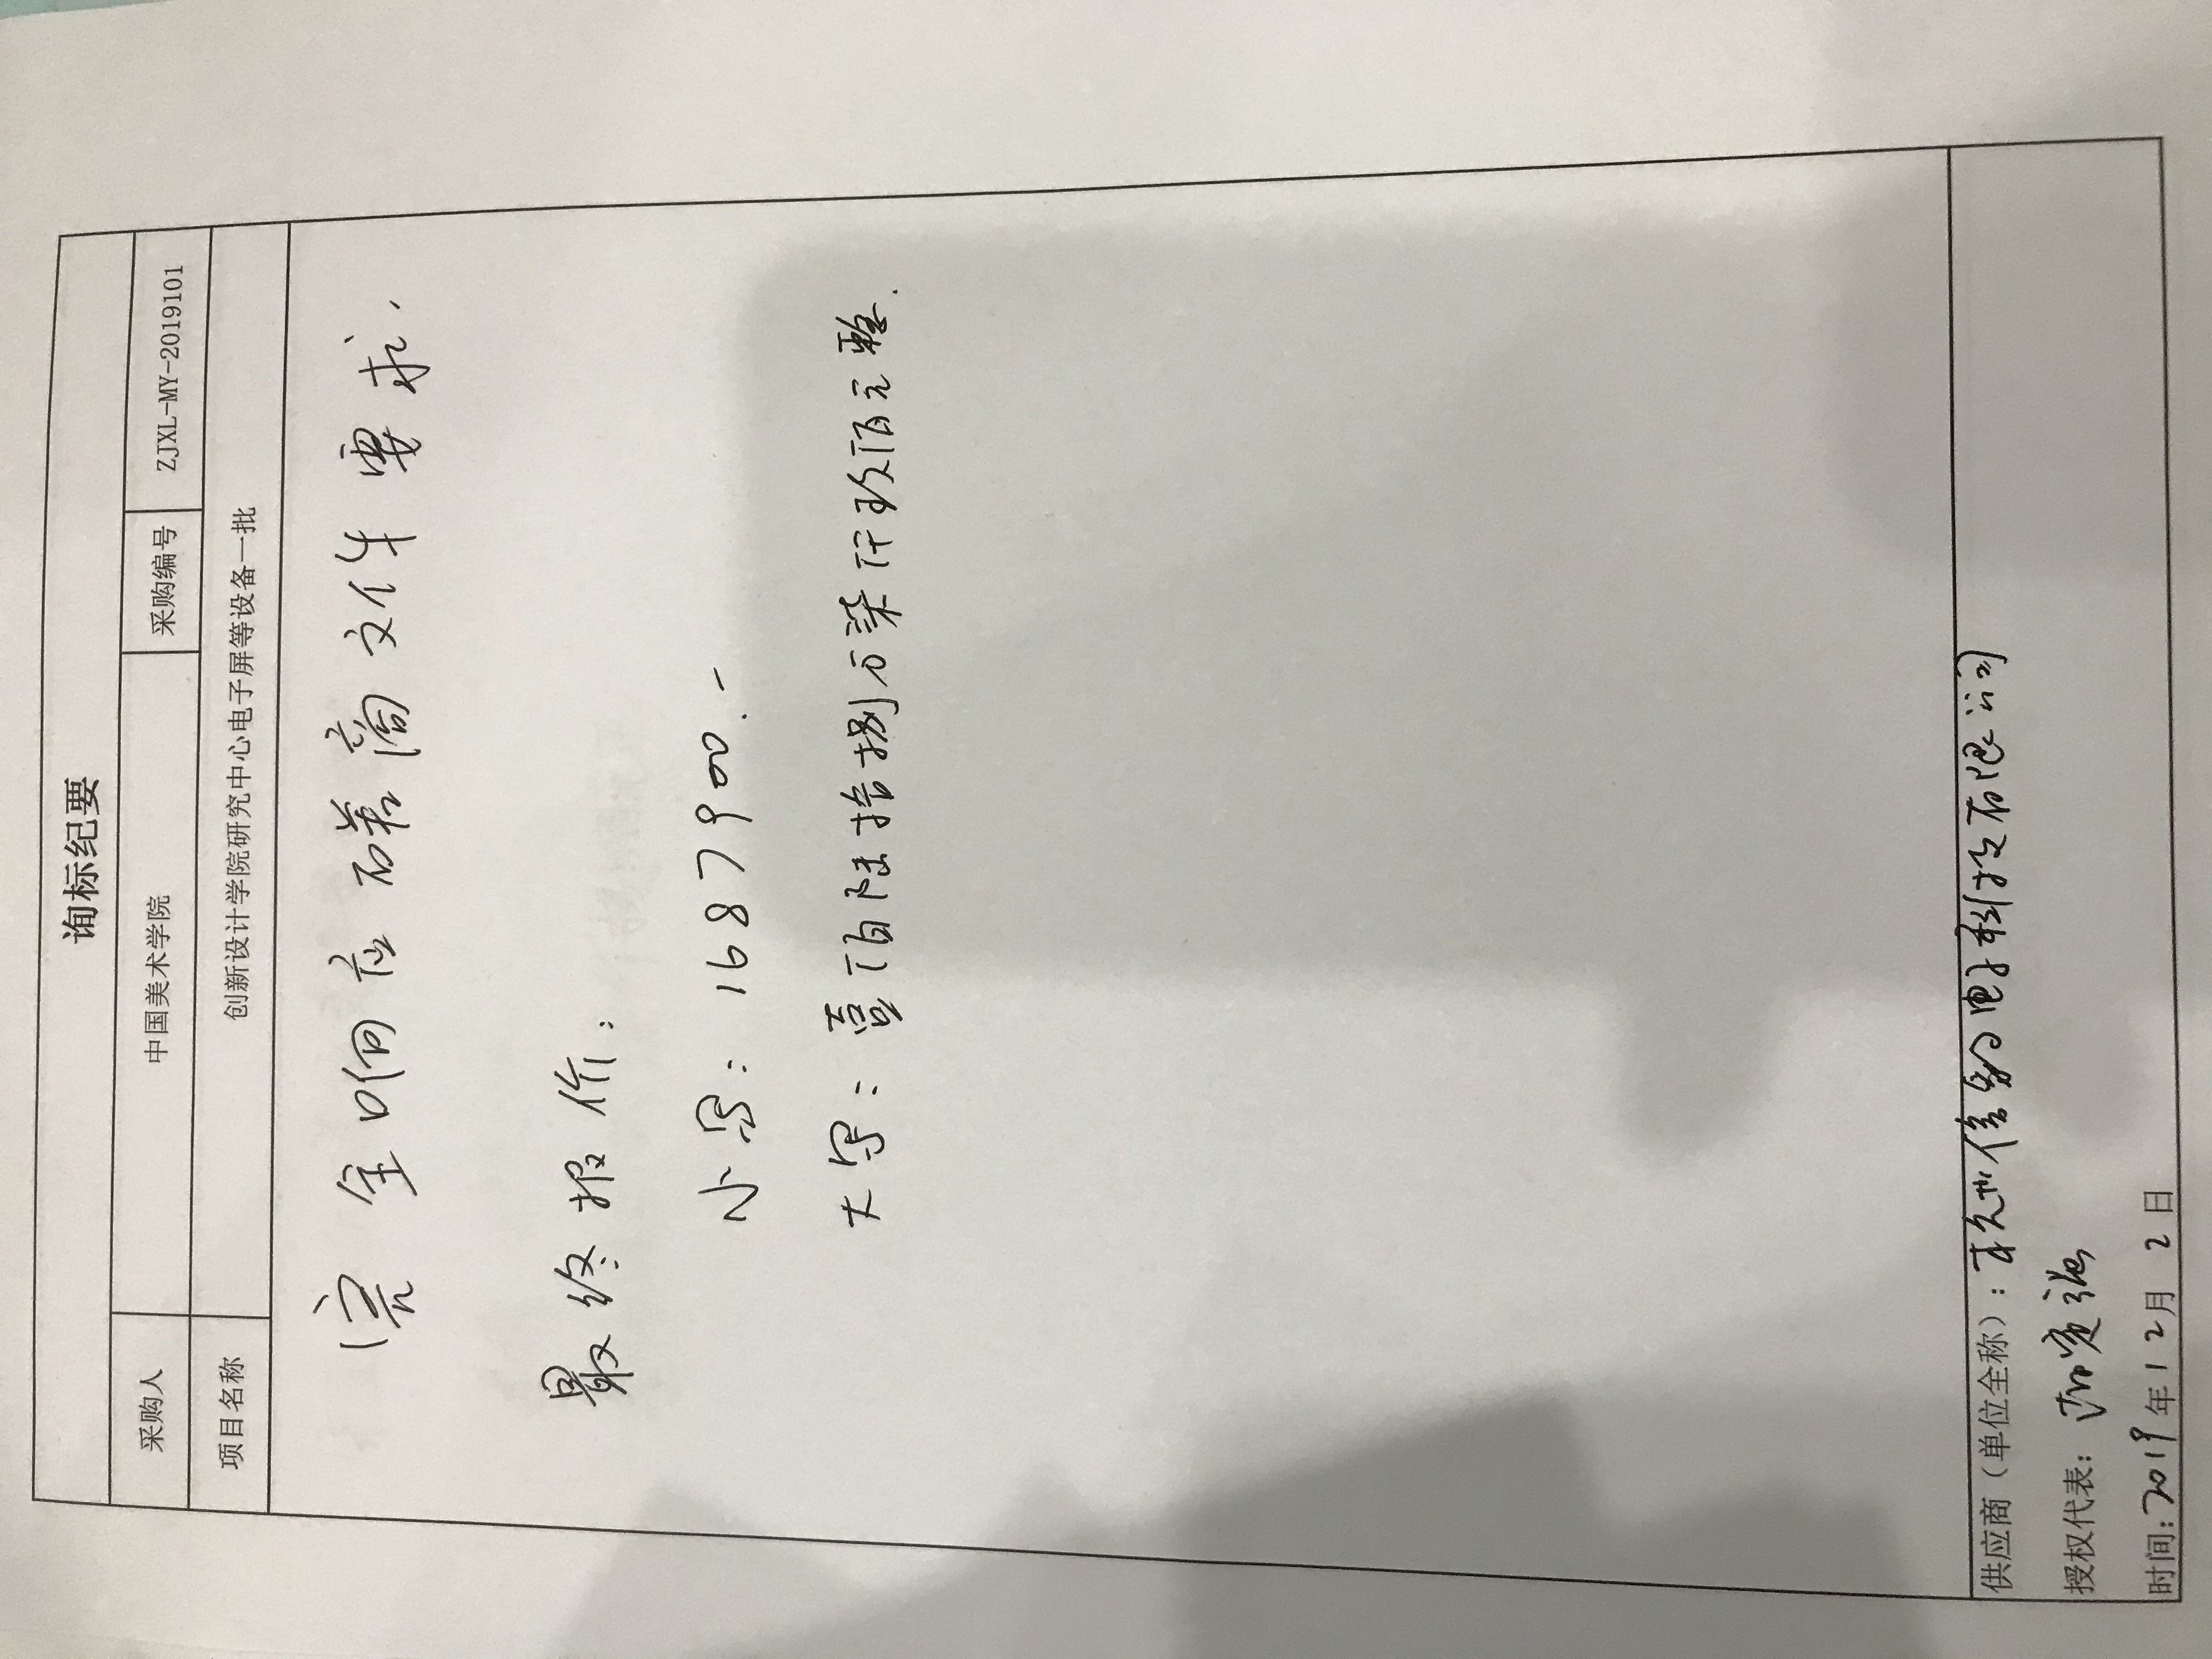 询标纪要
采购人 中国美术学院 采购编号 ZJXL-MY-2019101
项目名称 创新设计学院研究中心电子屏等设备一批
完全响应磋商文件要求.
最终报价:
小写: 1687900.-
大写: 壹佰陆拾捌万柒仟玖佰元整.
供应商（单位全称）: 杭州信 电子科技有限公司
授权代表:
时间: 2019年12月2日